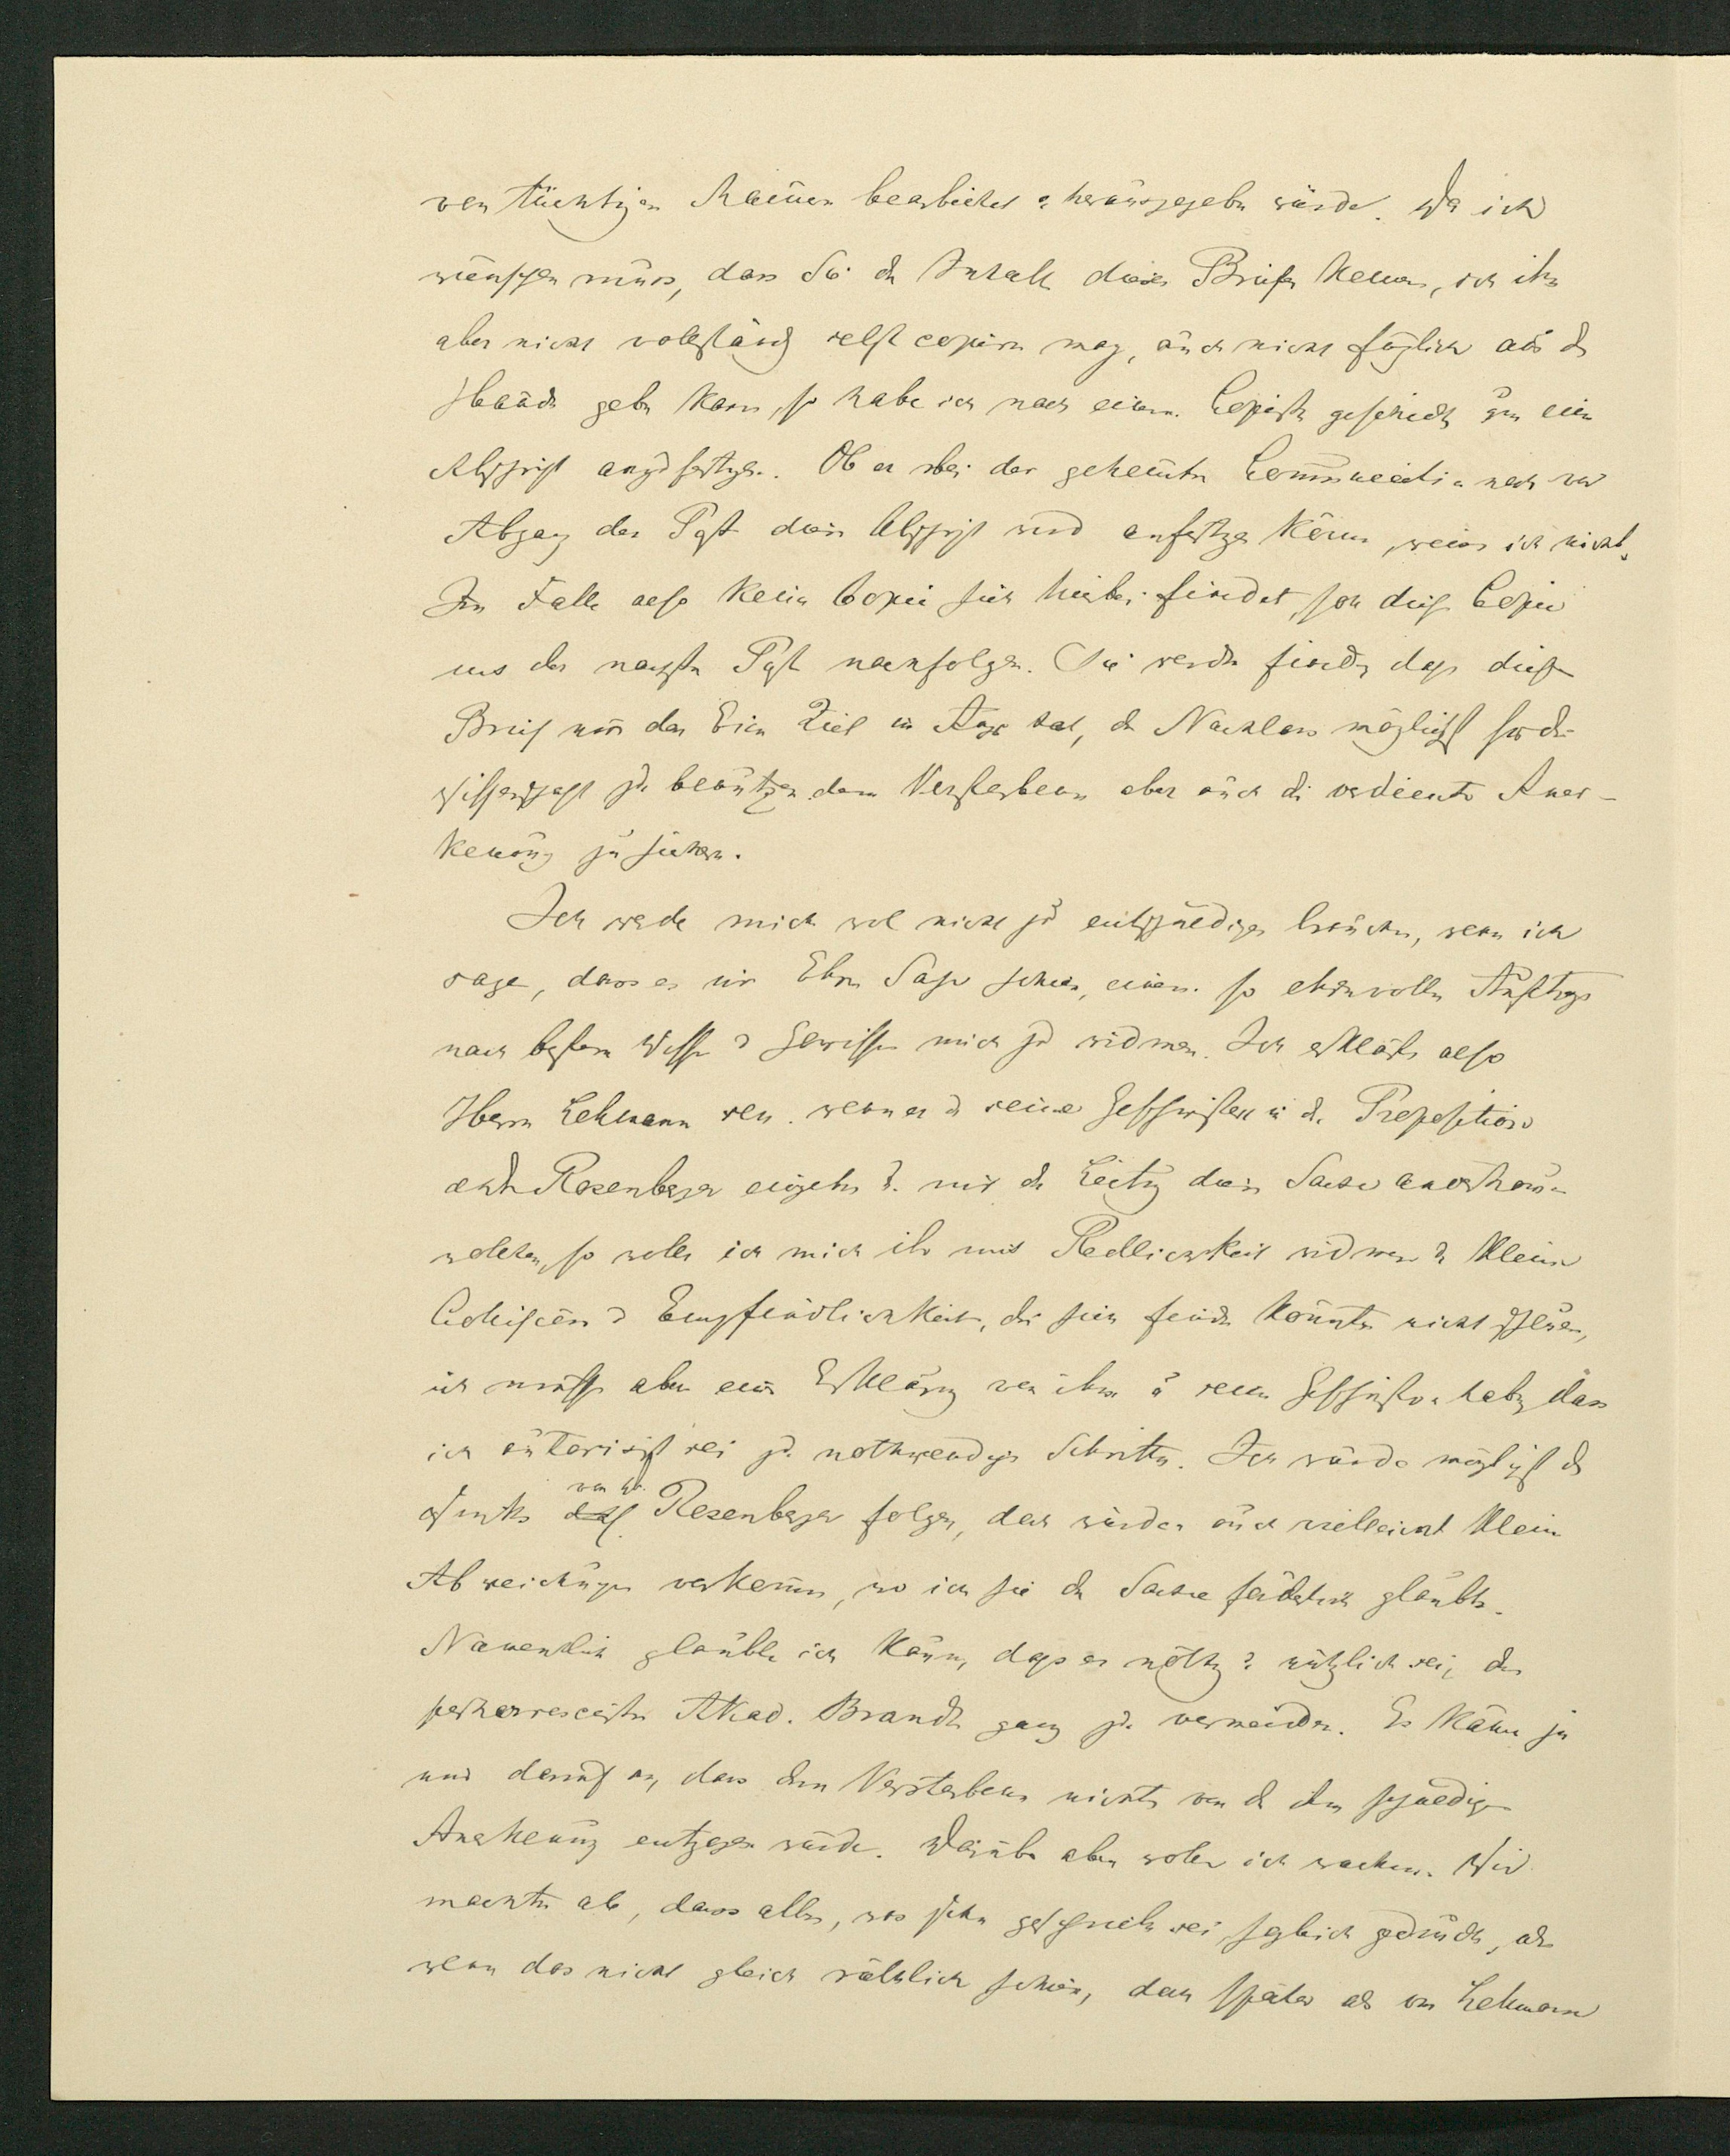 von tüchtigen Männern bearbeitet u. herausgegeben würde. Da ich
wünschen muss, dass Sie den Inhalt dieses Briefes kennen, ich ihn
aber nicht vollständig selbst copiren mag, auch nicht füglich aus den
Händen geben kann, so habe ich nach einem Copisten geschickt um eine
Abschrift anzufertigen. Ob er bei der gehemmten Communication noch vor
Abgang der Post diese Abschrift wird anfertigen können, weiss ich nicht.
Im Falle also keine Copie sich hierbei findet, soll diese Copie
mit der nächsten Post nachfolgen. Sie werden finden dass dieser
Brief nur das Eine Ziel im Auge hat, den Nachlass möglichst für die
Wissenschaft zu benützen dem Verstorbenen aber auch die verdiente Aner-
kennung zu sichern.
Ich werde mich wol nicht zu entschuldigen brauchen, wenn ich
sage, dass es mir Ehren Sache schien, einem so ehrenvollen Auftrage
nach bestem Wissen u Gewissen mich zu widmen. Ich erklärte also
Herrn Lehmann sen. wenn er u seine Geschwister in die Proposition
des Rosenberger eingehen u. mir die Leitung dieser Sache anvertrauen
wollten, so wolle ich mich ihr mit Redlichkeit widmen u kleine
Collisionen u Empfindlichkeiten, die sich finden könnten nicht scheuen,
ich müsste aber eine Erklärung von ihm u seinen Geschwistern haben, dass
ich autorisirt sei zu nothwendigen Schritten. Ich würde möglichst den
Winken von H. Rosenberger folgen, doch würden auch vielleicht kleine
Abweichungen vorkommen, wo ich sie der Sache förderlich glaubte.
Namentlich glaubte ich kaum, dass es nöthig u nützlich sei, den
perhorrescirten Akad. Brandt ganz zu vermeiden. Es käme ja
nur darauf an, dass dem Verstorbenen nichts von der ihm schuldigen
Anerkennung entzogen würde. Darüber aber wolle ich wachen. Wir
machten ab, dass alles, was schon geschrieben sei, sogleich gedruckt, oder
wenn das nicht gleich räthlich schien, doch später als von Lehmann